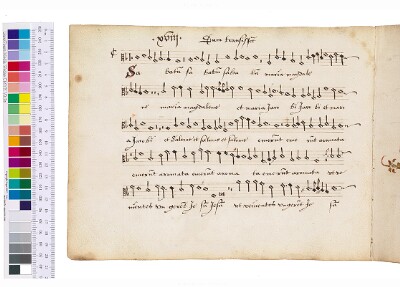 xviij. Cum transisset
Sa batum sa batum saba tum maria magdale
ne maria magdalene et maria Jaco bi et mari
a Jacobi et Salome et salome et salome emerunt eme runt aromata
emerunt aromata emerunt aroma ta emerunt aromata ut ve
nientes ungerent Je sum Jesum ut venientes ungerent Je sum